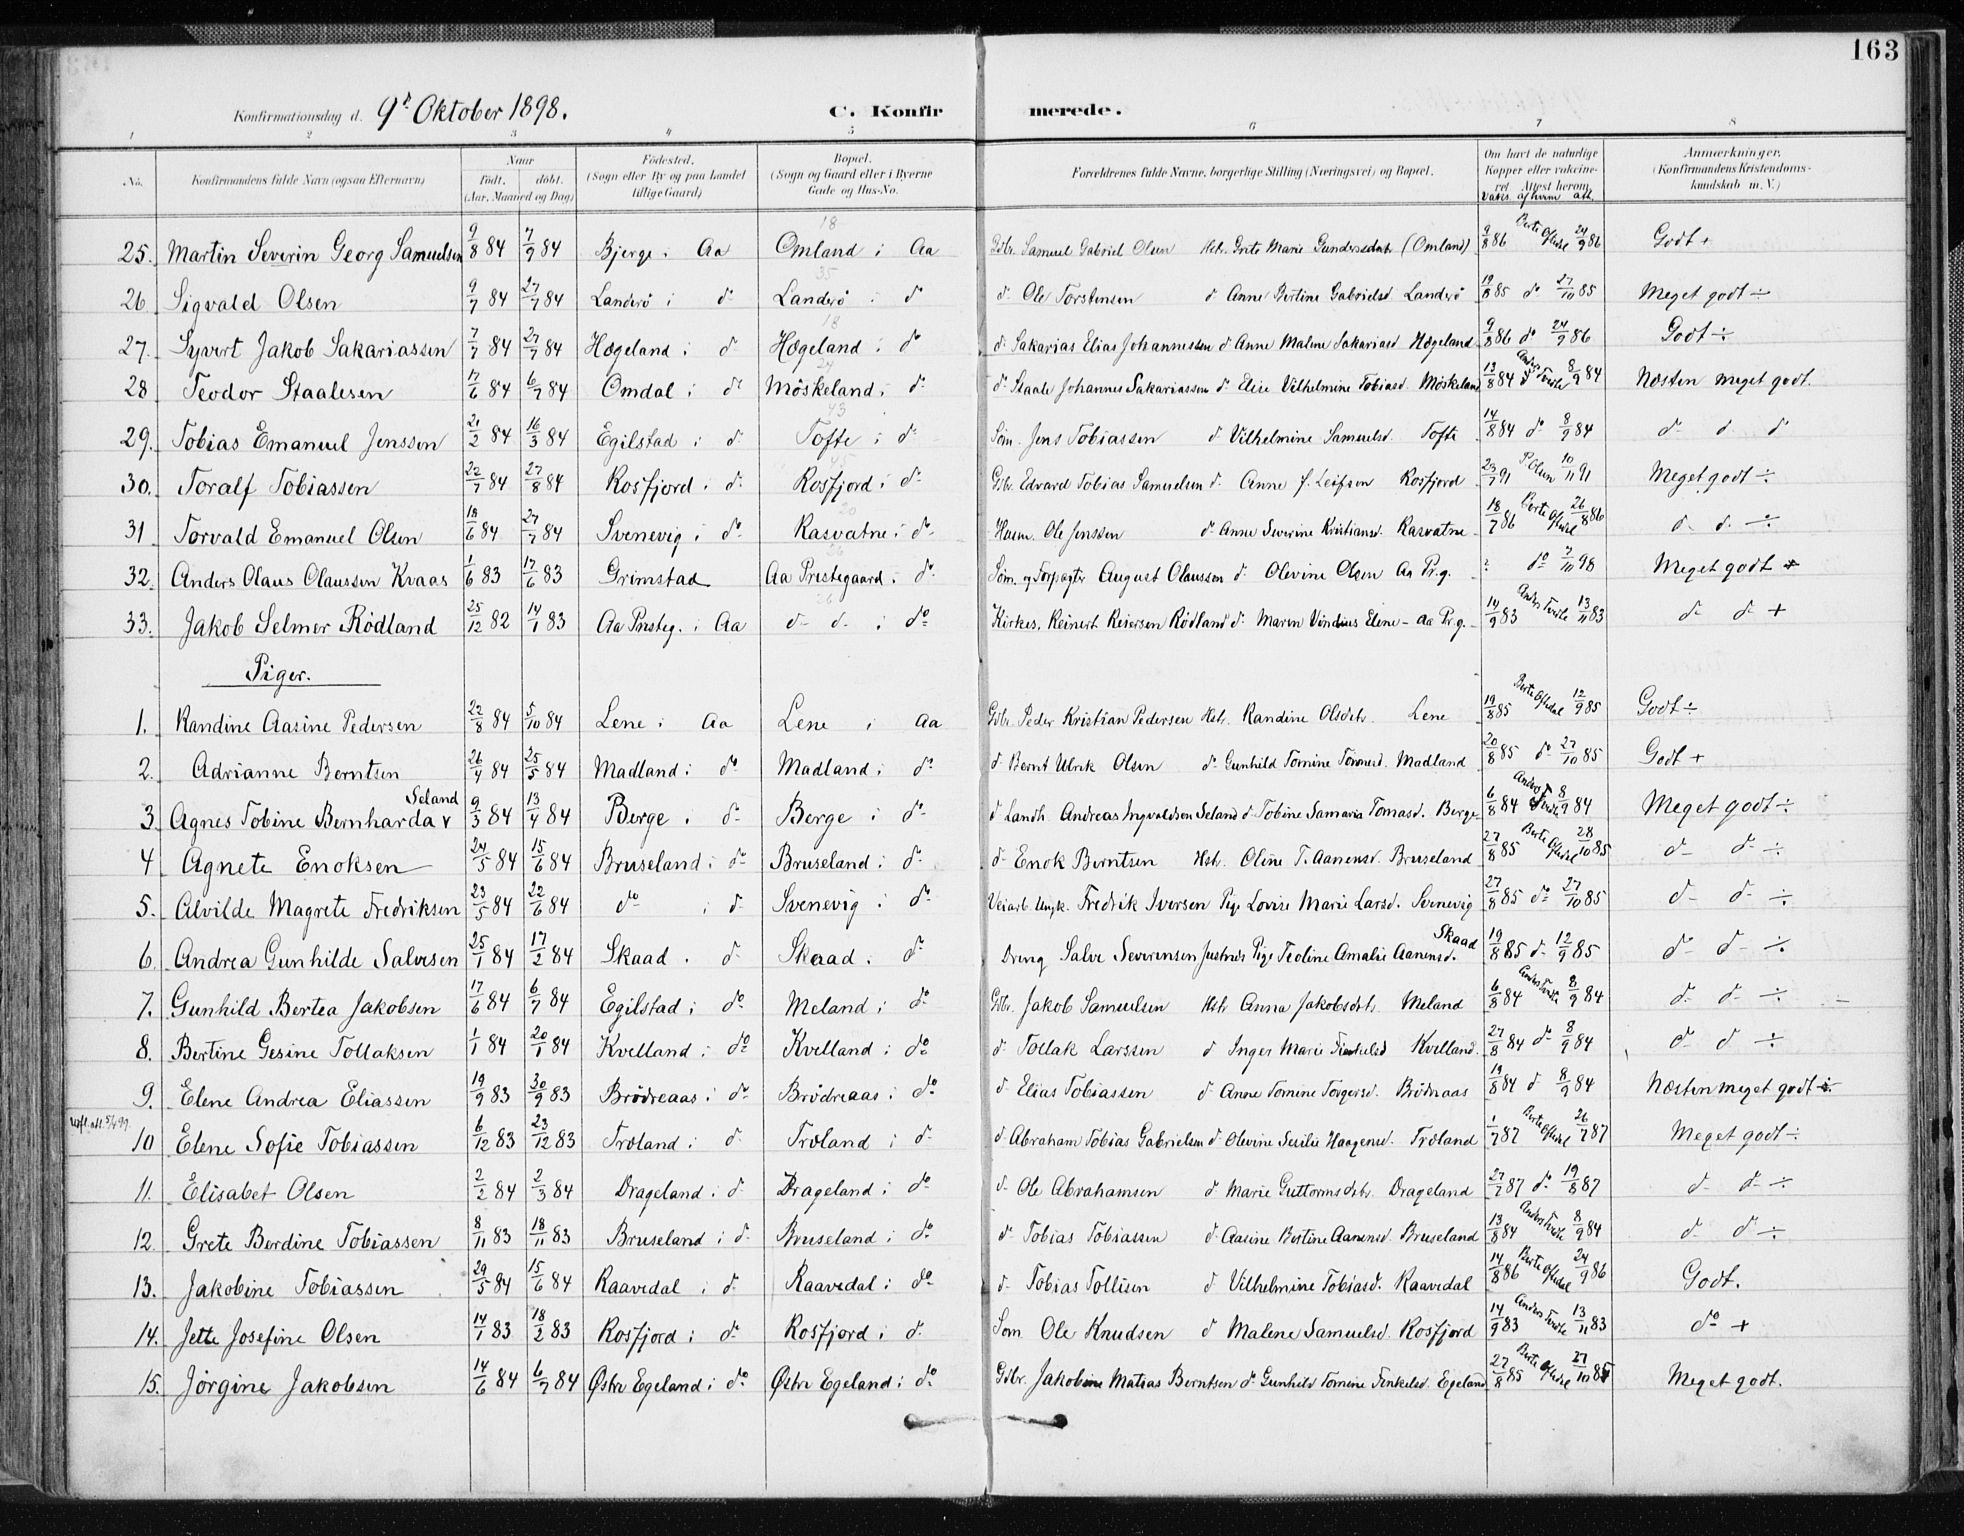 163
Konfirmationsdag d. 9d Oktober 1898. C. Konfirmerede.
1 2 3 4 5 6 7 8
No. Konfirmandens fulde Navn (ogsaa Efternavn) Naar Født. døbt. (Aar, Maaned og Dag) Fødested. (Sogn eller By og paa Landet tillige Gaard) Bopæl. (Sogn og Gaard eller i Byerne Gade og Hus-No. Forældrenes fulde Navne, borgerlige Stilling (Næringsvei) og Bopæl. Om havt de naturlige Kopper eller vakcineret. Attest herom. Vakc. af hvem att. Anmærkninger. (Konfirmandens Kristendomskundskab m. V.)
25. Martin Severin Georg Samuelsen 9/8 84 7/9 84 Bjerge i Aa 18 Omland i Aa Gdbr. Samuel Gabriel Olsen Hstr. Grete Marie Gundersdatr (Omland) 9/8 86 Berte Oftedal 24/9 86 Godt +
26 Sigvald Olsen 9/7 84 27/7 84 Landerö i do 35 Landerö i do do Ole Torstensen do Anne Bertine Gabrielsd. Landerö 19/8 85 do 27/10 85 Meget godt ÷
27. Syvert Jakob Sakariassen 7/7 84 27/7 84 Hægeland i do 18 Hægeland i do do Sakarias Elias Johannessen do Anne Malene Sakariasd Hægeland 9/8 86 do 24/9 86 Godt ÷
28 Teodor Staalesen 17/6 84 6/7 84 Omdal i do Möskeland i do do Staale Johannes Sakariassen do Elise Vilhelmine Tobiasd. Möskeland 13/8 84 do 8/9 84 Næsten meget godt.
29. Tobias Emanuel Jenssen 21/2 84 16/3 84 Egilstad i do 43 Tofte i do Söm. Jens Tobiassen do Vilhelmine Samuelsd. Tofte 14/8 84 do 8/9 84 do do do
30. Toralf Tobiassen 22/7 84 27/8 84 Rosfjord i do Rosfjord i do Gdbr. Edvard Tobias Samuelsen do Anne f. Leifsen Rosfjord 23/7 91 P. Olsen 10/11 91 Meget godt ÷
31 Torvald Emanuel Olsen 18/6 84 27/7 84 Svenevig i do 20 Rasvatne i do Husm. Ole Jenssen do Anne Severine Kristiansd. Rasvatne 18/7 86 Berte Oftedal 26/8 86 do do ÷
32. Anders Olaus Olaussen Kvaas 1/6 83 17/6 83 Grimstad Aa Prestegaard i do Söm. og Forpagter August Olaussen do Olevine Olsen Aa Pr.g. ? do 7/10 98 Meget godt +
33. Jakob Selmer Rödland 25/12 82 14/1 83 Aa Presteg. i Aa do do i do Kirkes. Reinert Reiersen Rödland do Maren Vindius Elene – Aa Pr.g. 14/9 83 13/11 83 do do +
Piger.
1. Randine Aasine Pedersen 22/8 84 5/10 84 Lene i Aa Lene i Aa Gdbr. Peder Kristian Pedersen Hstr. Randine Olsdtr. Lene 19/8 85 Berte Oftedal 12/9 85 Godt ÷
2. Adrianne Berntsen 26/4 84 25/5 84 Madland i do Madland i do do Bernt Ulrik Olsen do Gunhild Tomine Madland 20/8 85 do 27/10 85 Godt +
3. Agnes Tobine Bernharda v Seland 9/3 84 13/4 84 Berge i do Berge i do do Landh. Andreas Ingvaldsen Seland do Tobine Samaria Tomasd. Berge 6/8 84 8/9 84 Meget godt ÷
4 Agnete Enoksen 24/5 84 15/6 84 Bruseland i do Bruseland i do do Enok Berntsen Hstr. Oline T. Aanensd. Bruseland 27/8 85 Berte Oftedal 28/10 85 do do ÷
5. Alvilde Magrete Fredriksen 23/5 84 22/6 84 do i do Svenevig i do Veiarb. Ungk. Fredrik Iversen Pige Lovise Marie Larsd. Svenevig 27/8 85 do 27/10 85 do do ÷
6. Andrea Gunhilde Salvesen 25/1 84 17/2 84 Skaad. do Skaad. do Dreng Salve Severinsen Justnes Pige Teoline Amalie Aanensd. Skaad 19/8 85 do 12/9 85 do do ÷
7. Gunhild Bertea Jakobsen 17/6 84 6/7 84 Egilstad i do Meland i do Gdbr. Jakob Samuelsen Hstr Anna Jakobsdtr. Meland 6/8 84 8/9 84 do do ÷
8. Bertine Gesine Tollaksen 1/1 84 20/1 84 Kvelland i do Kvelland i do do Tollak Larssen do Inger Marie Kvelland. 27/8 84 do 8/9 84 do do ÷
9. Elene Andrea Eliassen 19/9 83 30/9 83 Brödreaas i do Brödreaas i do do Elias Tobiassen do Anne Tomine Torgersd. Brödreaas 19/8 84 do 8/9 84 Næsten meget godt ÷
10 Elene Sofie Tobiassen 6/12 83 23/12 83 Tröland i do Tröland i do do Abraham Tobias Gabrielsen do Olevine Serilie Haagensd. Tröland 1/7 87 Berte Oftedal 26/7 87 Meget godt ÷
11. Elisabet Olsen 2/2 84 2/3 84 Drageland i do Drageland i do do Ole Abrahamsen do Marie Guttormsdtr. Drageland 27/7 87 do 19/8 87 do do ÷
12. Grete Berdine Tobiassen 8/11 83 18/11 83 Bruseland i do Bruseland i do do Tobias Tobiassen do Aasine Bertine Aanensd. Bruseland 13/8 84 8/9 84 do do ÷
13. Jakobine Tobiassen 29/5 84 15/6 84 Raavedal i do Raavedal i do do Tobias Tollisen do Vilhelmine Tobiasd. Raavedal 14/8 86 Berte Oftedal 24/9 86 Godt.
14. Jette Josefine Olsen 14/1 83 18/2 83 Rosfjord i do Rosfjord i do Söm. Ole Knudsen do Malene Samuelsd. Rosfjord 14/9 83 13/11 83 do +
15. Jörgine Jakobsen 14/6 84 6/7 84 Østre Egeland i do Østre Egeland i do Gdbr. Jakob Matias Berntsen do Gunhild Tomine Tenkelsd. Egeland 27/8 85 Berte Oftedal 27/10 85 Meget godt.